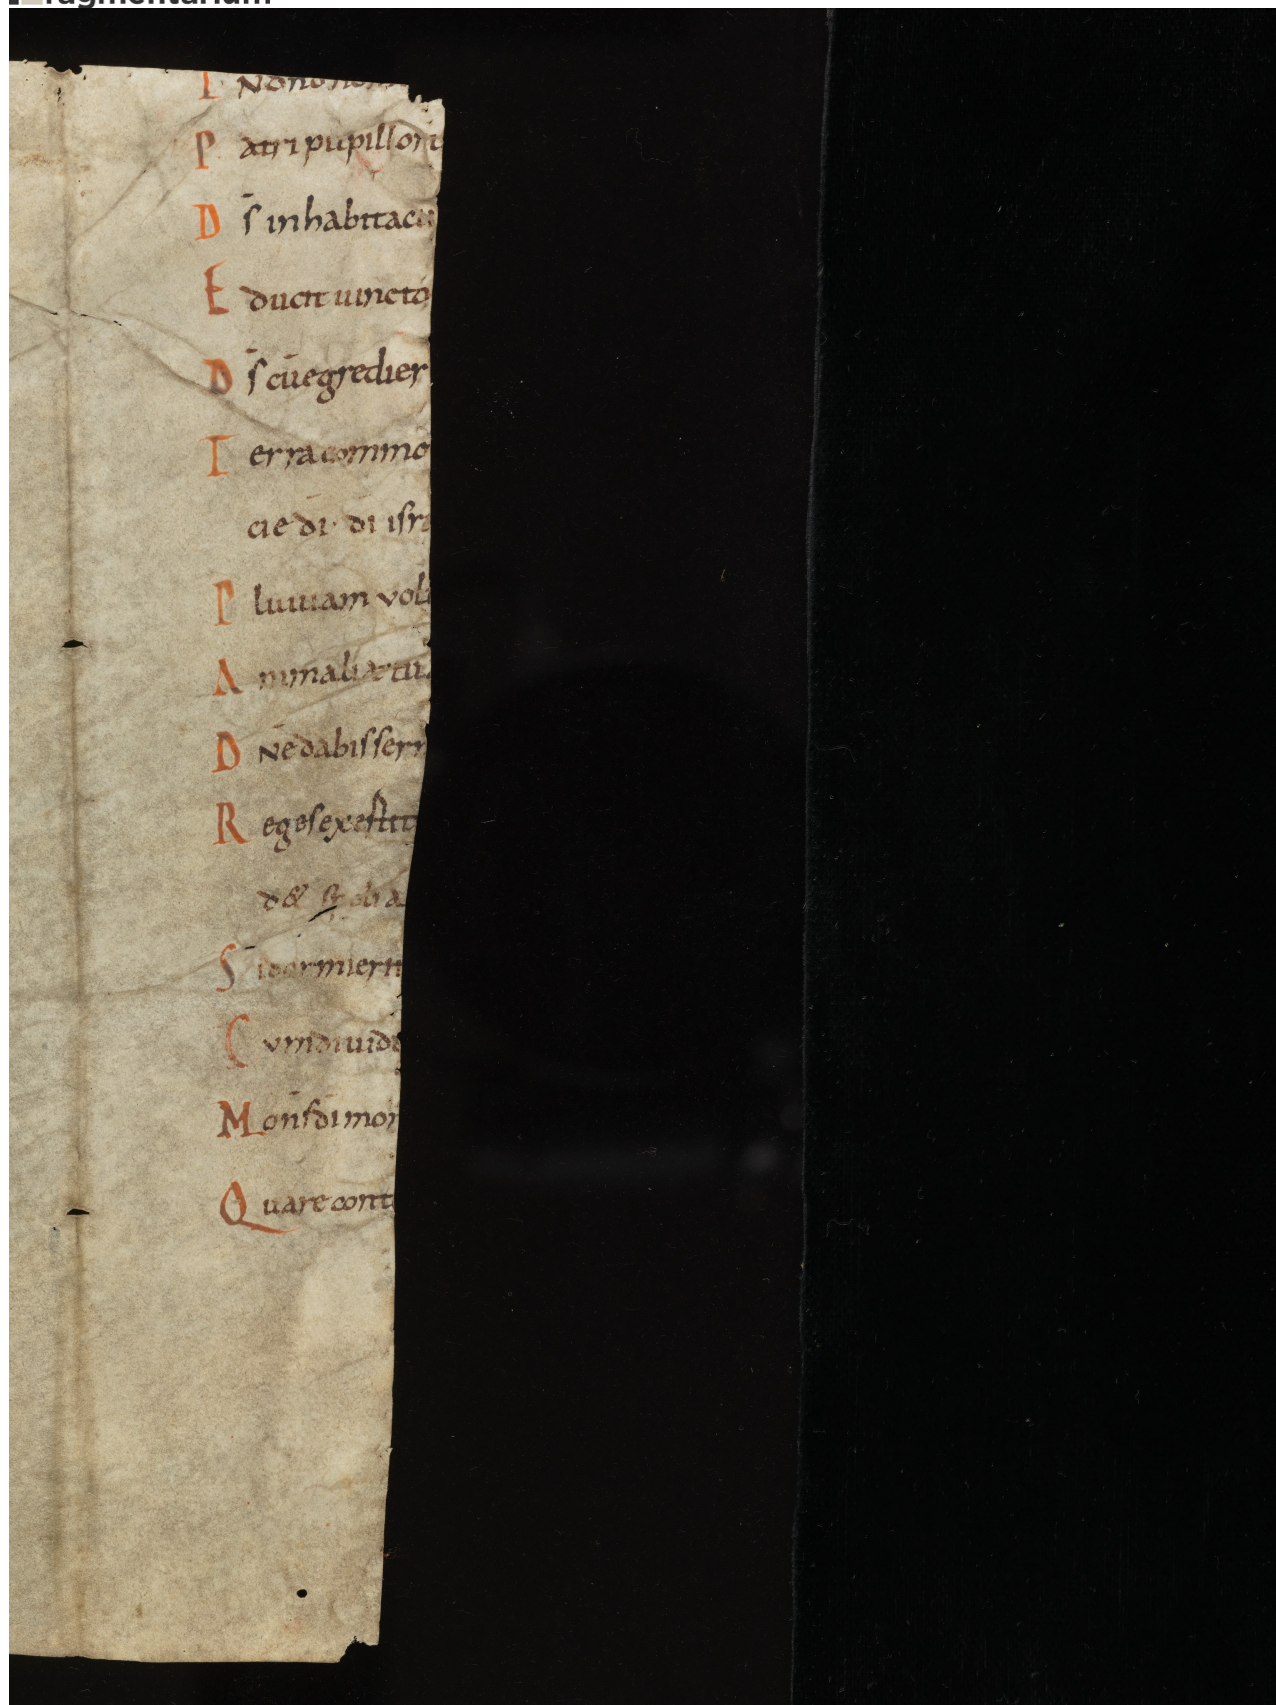 P atri pupilloru
D s̄ inhabitacu
E ducit uincto
D s̄ cū egredier
T erra commo
cie dī dī isra
P luuiam vol
A nimalia tua
D n̄e dabis ser
R eges exercit
d& spolia
S i dormierit
C um diuid
M ons dī mon
Q uare cont